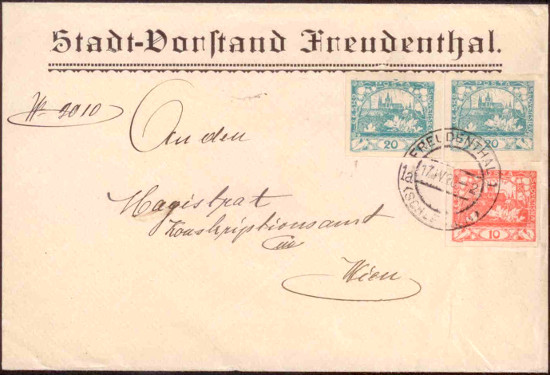 Stadt-Vorstand Freudenthal.
Nº 3010
An den
Magistrat
Konskriptionsamt
in
Wien
20
20
10
FREUDENTHAL
17. IV
1a